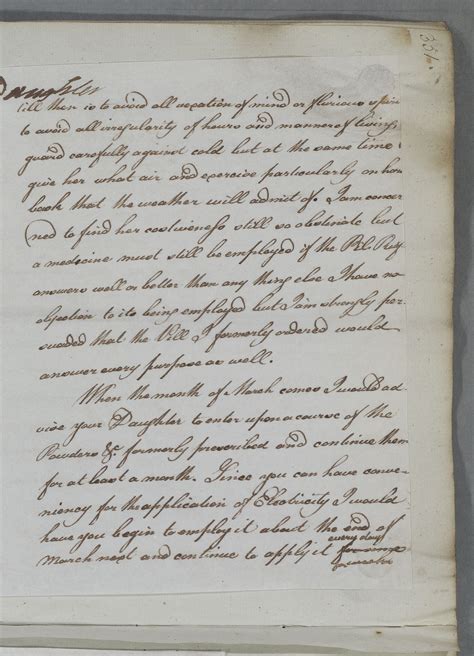 331.
Daughter
till then is to avoid all vexation of mind or
to avoid all irregularity of hours and manner of living,
guard carefully against cold but at the same time
give her what air and exercise particularly on hors
back that the weather will admit of. I am concer
ned to find her costiveness still so obstinate but
a medicine must still be employed if the Pil: Rufi
answers well or better than any thing else I have no
objection to its being employed but I am strongly per
suaded that the Pill I formerly ordered would
answer every purpose as well.
When the month of March comes I would ad
vise your Daughter to enter upon a course of the
Powders &c. formerly prescribed and continue them
for at least a month. Since you can have conve
niency for the application of Electricity I would
have you begin to employ it about the end of
every day
March next and continue to apply it for some